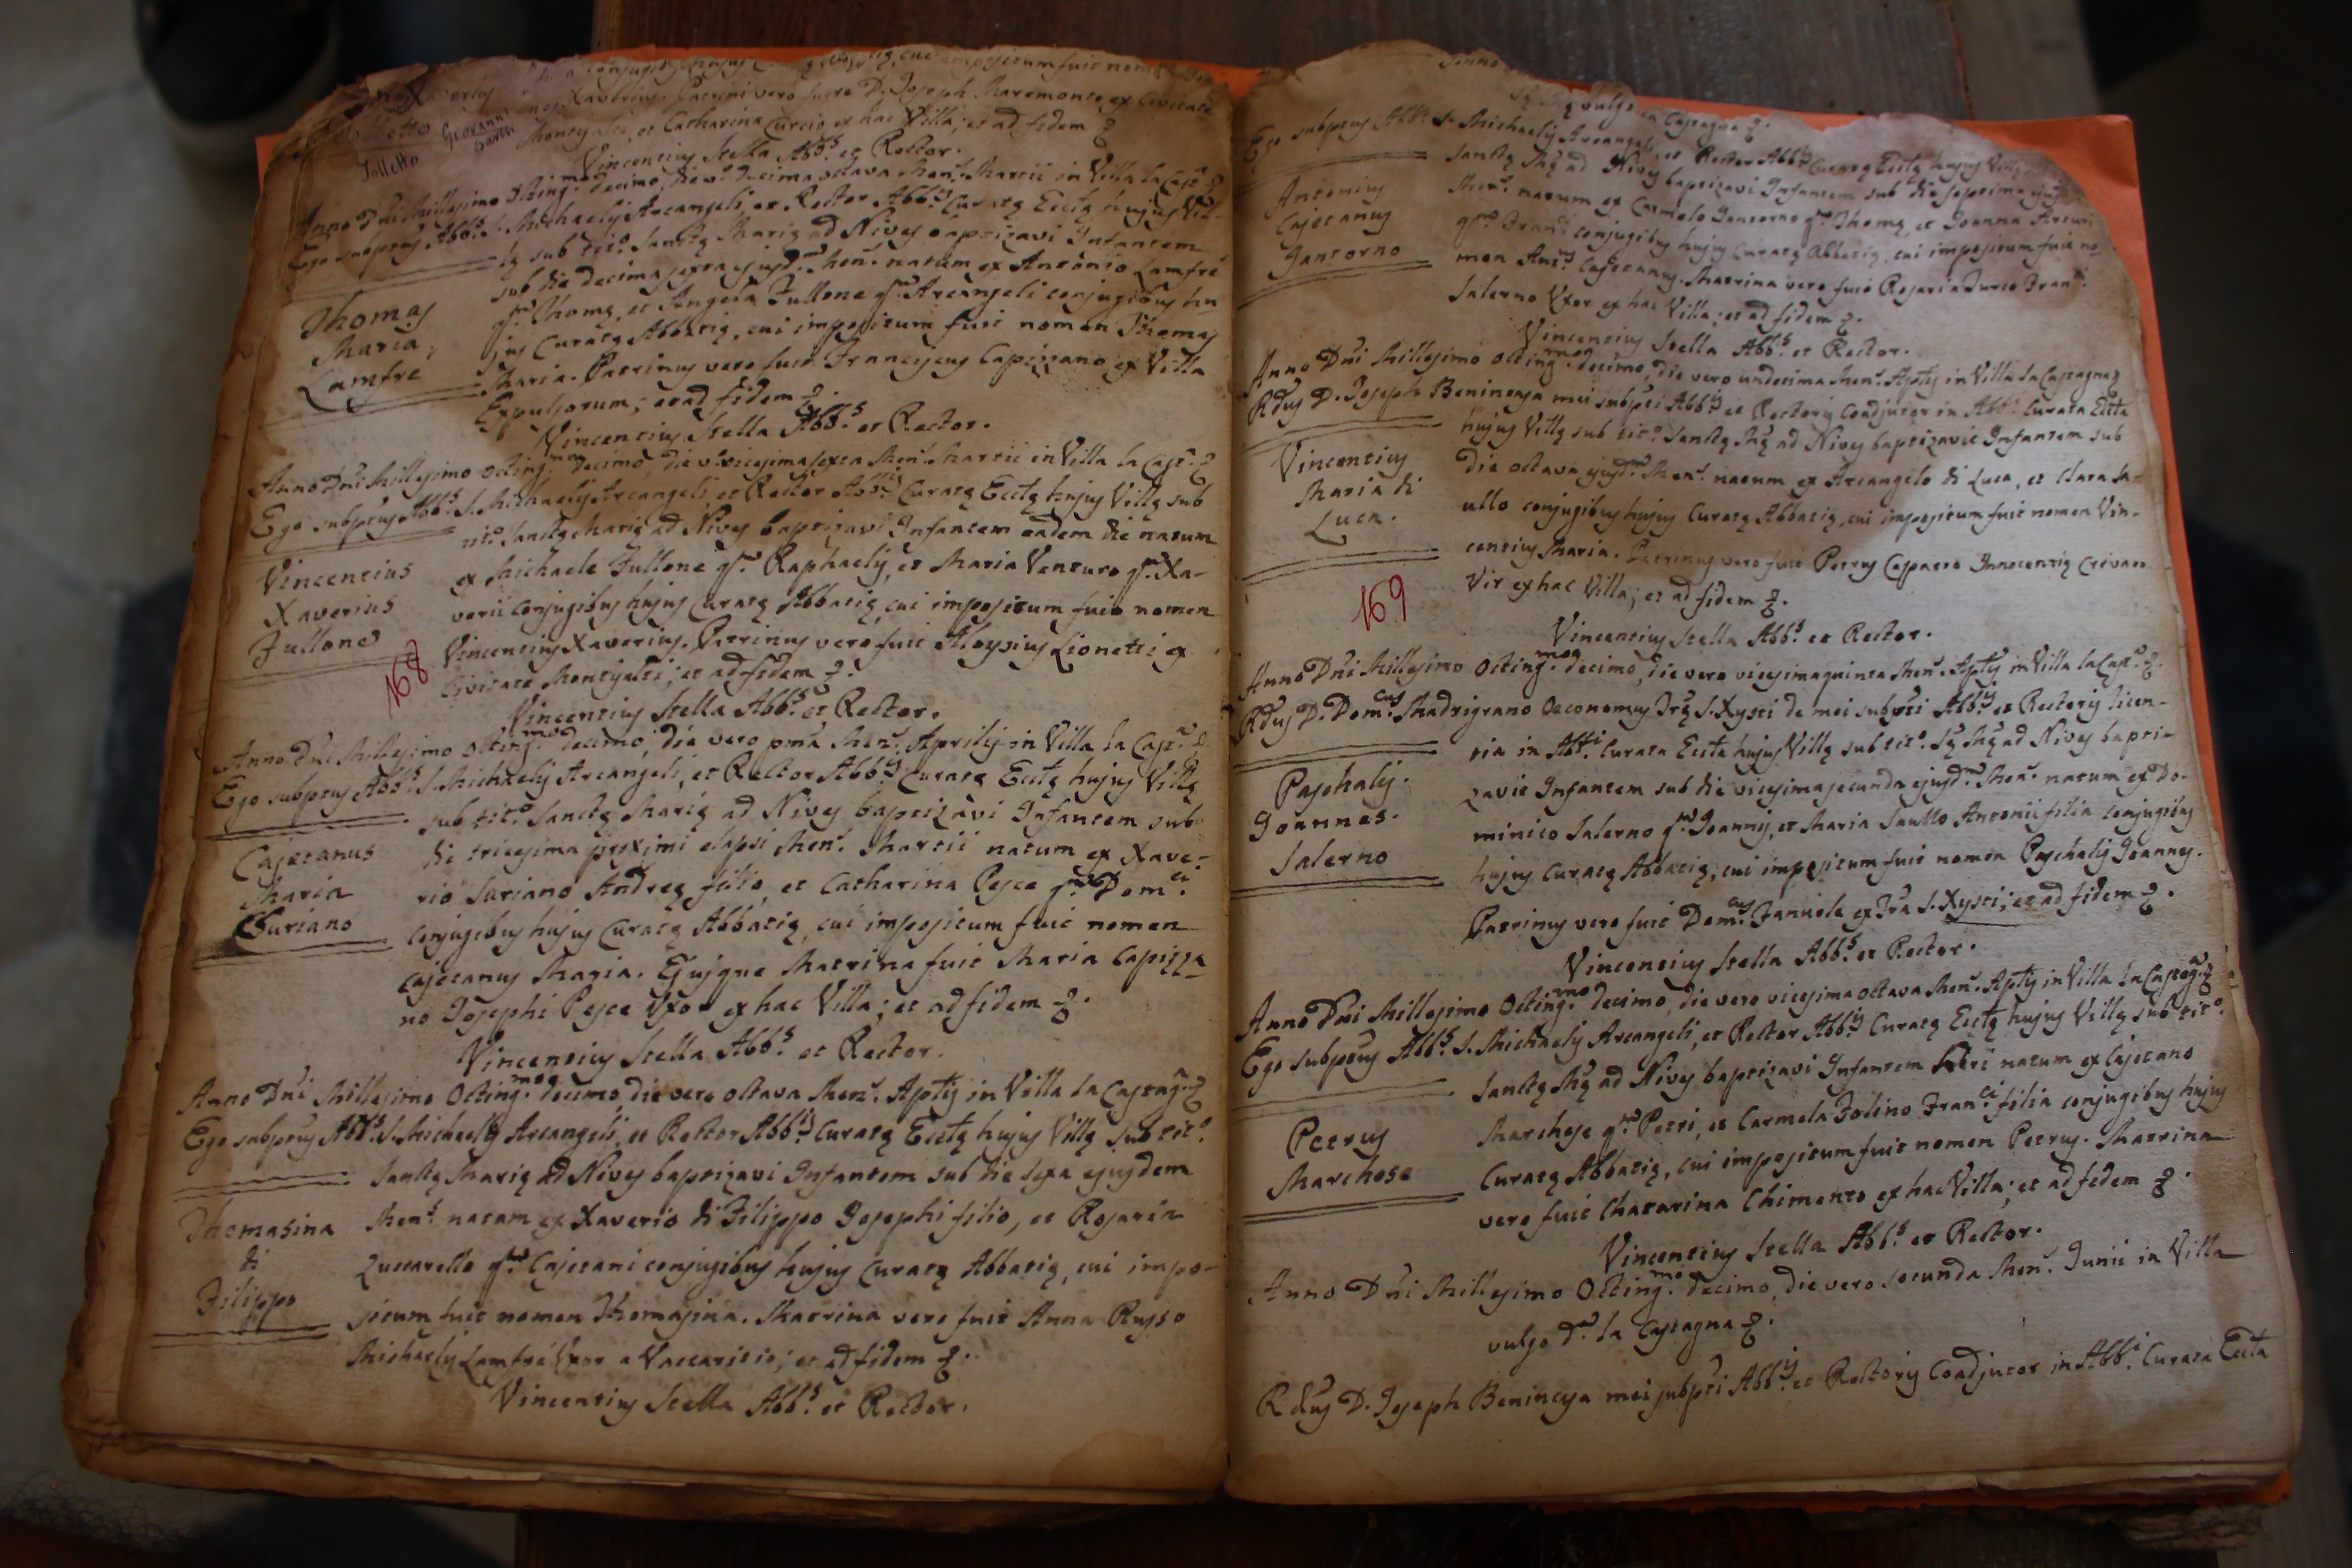 conjugibus hujus cui impositum fuit nomen
Xaverius Xaverius. Patrini vero fuere D. Joseph Maremonte ex Civitate
Folletto Giovanni Montisalti, et Catharina Curcio ex hac Villa; et ad fidem
Vincentius Stella Abb.s et Rector.
Anno Dñi Millesimo Octing.mo decimo, die v.o decima octava Men.s Martii in Villa la Cast.a
Ego subptus Abb.s S. Michaelis Arcangeli, et Rector Abb.is Curatę Ecctę hujus Vil-
lę sub tit.o Sanctę Marię ad Nives baptizavi Infantem
sub die decima sexta ejusd.m Men.s natum ex Antonio Lamfre
q.m Thomę, et Angela Fullone q.m Arcangeli conjugibus hu
jus Curatę Abbatię, cui impositum fuit nomen Thomas
Maria. Patrinus vero fuit Franciscus Capizzano ex Villa
Expulsorum; et ad fidem
Thomas
Maria
Lamfre
Vincentius Stella Abb.s et Rector.
Anno Dñi Millesimo Octing.mo decimo, die v.o vicesima sexta Men.s Martii in Villa la Cast.a
Ego subptus Abb.s S. Michaelis Arcangeli, et Rector Abb.is Curatę Ecctę hujus Villę sub
tit.o Sanctę Marię ad Nives baptizavi Infantem eadem die natum
ex Michaele Fullone q.m Raphaelis, et Maria Venturo q.m Xa-
verii conjugibus hujus Curatę Abbatię cui impositum fuit nomen
Vincentius Xaverius. Patrinus vero fuit Aloysius Lionetti ex
Civitate Montisalti; et ad fidem
Vincentius
Xaverius
Fullone
168
Vincentius Stella Abb.s et Rector.
Anno Dñi Millesimo Octing.mo decimo, die vero pma Men.s Aprilis in Villa la Cast.a
Ego subptus Abb.s S. Michaelis Arcangeli, et Rector Abb.is Curatę Ecctę hujus Villę
sub tit.o Sanctę Marię ad Nives baptizavi Infantem sub
die tricesima proximi elapsi Men.s Martii natum ex Xave-
rio Suriano Andreę filio, et Catharina Pesce q.m Dom.ci
conjugibus hujus Curatę Abbatię, cui impositum fuit nomen
Cajetanus Maria. Ejusque Matrina fuit Maria Capizza
no Josephi Pesce Uxor ex hac Villa; et ad fidem
Cajetanus
Maria
Suriano
Vincentius Stella Abb.s et Rector.
Anno Dñi Millesimo Octing.mo decimo, die vero octava Men.s Aplis in Villa la Castag.a
Ego subptus Abb.s S. Michaelis Arcangeli, et Rector Abb.is Curatę Ecctę hujus Villę sub tit.o
Sanctę Marię ad Nives baptizavi Infantem sub die sexa ejusdem
Men.s natam ex Xaverio di Filippo Josephi filio, et Rosaria
Zuccarello q.m Cajetani conjugibus hujus Curatę Abbatię, cui impo-
situm fuit nomen Thomasina. Matrina vero fuit Anna Russo
Michaelis Lamfre Uxor a Vaccaritio; et ad fidem
Thomasina
di
Filippo
Vincentius Stella Abb.s et Rector.
Anno
Sę Mę vulgo la Castagna
Ego subptus Abb.s S. Michaelis Arcangeli, et Rector Abb.is Curatę Ecctę hujus Villę
Sanctę Mę ad Nives baptizavi Infantem sub die septima ejusd
Men.s natum ex Carmelo Jantorno q.m Thomę, et Joanna Arturi
q.m Fran.ci conjugibus hujus Curatę Abbatię, cui impositum fuit no-
men Ant.us Cajetanus. Matrina vero fuit Rosaria Turco Fran.ci
Salerno Uxor ex hac Villa; et ad fidem
Antonius
Cajetanus
Jantorno
Vincentius Stella Abb.s et Rector.
Anno Dñi Millesimo Octing.mo decimo, die vero undecima Men.s Aplis in Villa la Castagna
Rdus D. Joseph Benincasa mei subpti Abb.is et Rectoris Coadjutor in Abb.i Curata Eccta
hujus Villę sub tit.o Sanctę Mę ad Nives baptizavit Infantem sub
die octava ejusd.m Men.s natum ex Arcangelo di Luca, et Clara Sa-
ullo conjugibus hujus Curatę Abbatię, cui impositum fuit nomen Vin-
centius Maria. Patrinus vero fuit Petrus Capatto Innocentię Crivaro
Vir ex hac Villa; et ad fidem
Vincentius
Maria di
Luca.
169
Vincentius Stella Abb.s et Rector.
Anno Dñi Millesimo Octing.mo decimo, die vero vicesima quinta Men.s Aplis in Villa la Cast.a
Rdus D. Dom.cus Madrigrano Oeconomus Træ S. Xysti de mei subpti Abb.is et Rectoris licen-
tia in Abb.i Curata Eccta hujus Villę sub tit.o Sę Mę ad Nives bapti-
zavit Infantem sub die vicesima secunda ejusd.m Men.s natum ex Do-
minico Salerno q.m Joannis, et Maria Saullo Antonii filia conjugibus
hujus Curatę Abbatię, cui impositum fuit nomen Paschalis Joannes.
Patrinus vero fuit Dom.cus Januele ex Tra S. Xysti; et ad fidem
Paschalis.
Joannes.
Salerno
Vincentius Stella Abb.s et Rector.
Anno Dñi Millesimo Octing.mo decimo, die vero vicesima octava Men.s Aplis in Villa la Castag.a
Ego subptus Abb.s S. Michaelis Arcangeli, et Rector Abb.is Curatę Ecctę hujus Villę sub tit.o
Sanctę Mę ad Nives baptizavi Infantem heri natum ex Cajetano
Marchese q.m Petri, et Carmela Folino Fran.ci filia conjugibus hujus
Curatę Abbatię, cui impositum fuit nomen Petrus. Matrina
vero fuit Chatarina Chimento ex hac Villa; et ad fidem
Petrus
Marchese
Vincentius Stella Abb.s et Rector.
Anno Dñi Millesimo Octing.mo decimo, die vero secunda Men.s Junii in Villa
vulgo d.a la Castagna
Rdus D. Joseph Benincasa mei subpti Abb.is et Rectoris Coadjutor in Abb.i Curata Eccta